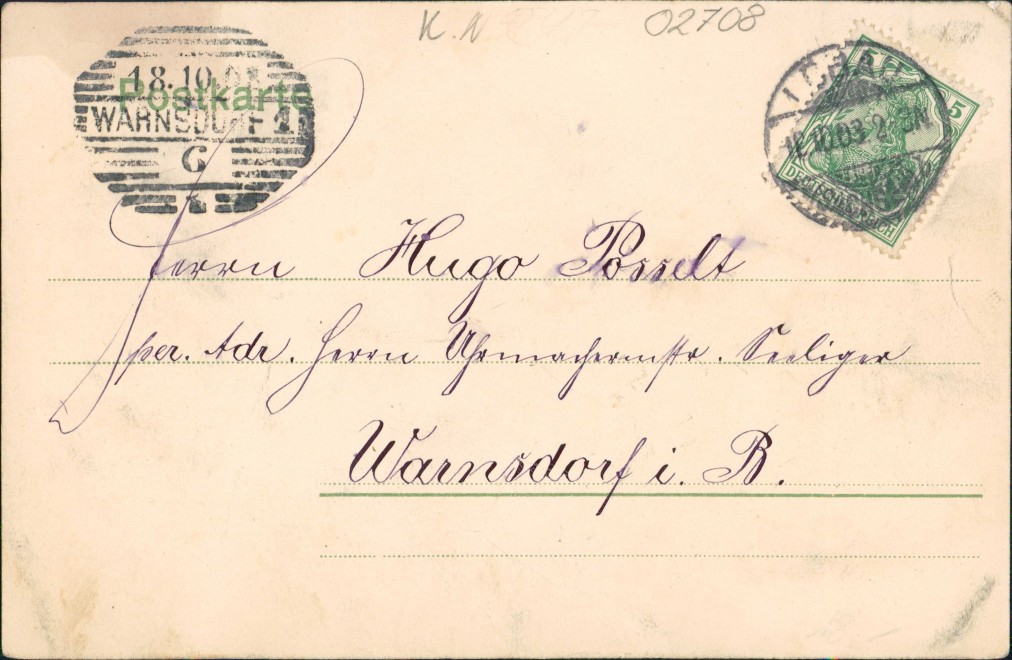 K. N
02708
18.10.03
WARNSDORF 1
6
Postkarte
LÖBAU
10.03. 2
5 5
DEUTSCHES REICH
Herrn Hugo Posselt
per. Adr. Herrn Uhrmachermstr. Seeliger
Warnsdorf i. B.